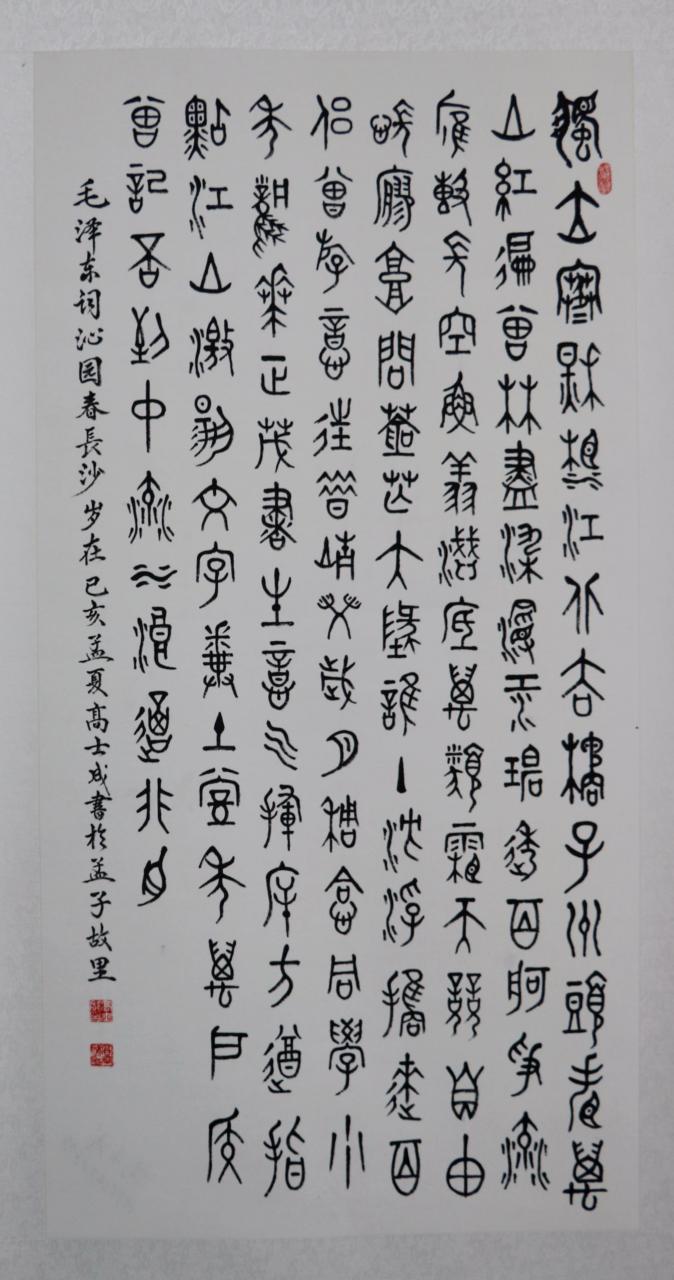 獨立寒秌湘江北去橘子州頭看萬
山紅遍曾林盡染漫江碧透百舸爭流
鷹擊長空魚翔淺底萬類霜天競自由
悵寥廓問蒼茫大地誰主沈浮攜來百
侶曾游憶往昔崢嶸歲月稠恰同學少
年華正茂書生意气揮斥方遒指
點江山激揚文字糞土當年萬戶侯
曾記否到中流水浪遏飛舟
毛泽东词沁园春長沙岁在己亥孟夏高士成書於孟子故里